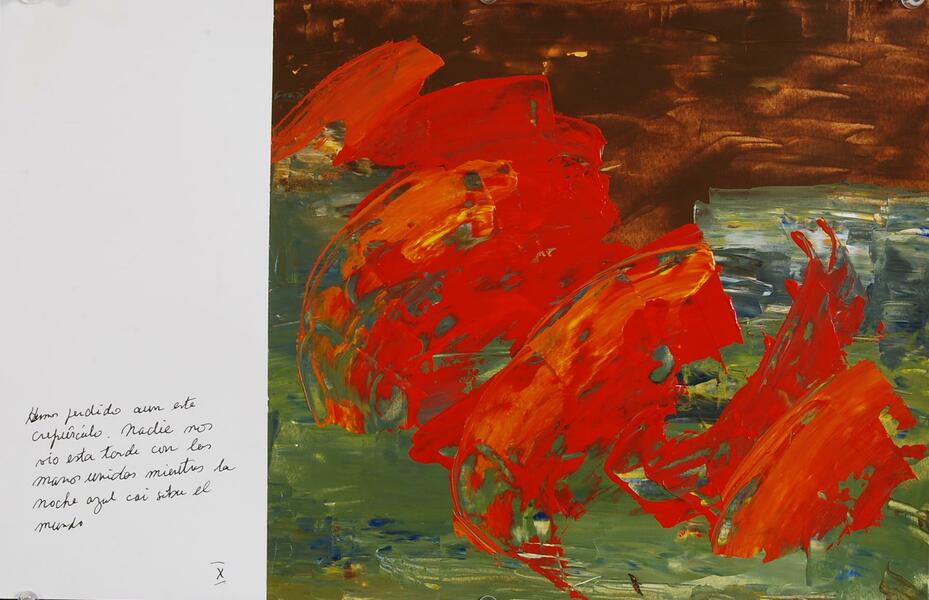 Hemos perdido aun este
crepúsculo. Nadie nos
vio esta tarde con las
manos unidas mientras la
noche azul caí sobre el
mundo
X